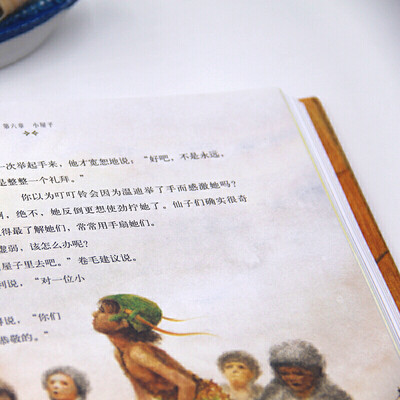 第六章 小屋子
一次举起手来，他才宽恕地说：“好吧，不是永远，
是整整一个礼拜。”
你以为叮叮铃会因为温迪举了手而感激她吗？
啊，绝不，她反倒更想使劲拧她了。仙子们确实很奇
得最了解她们，常常用手扇她们。
虚弱，该怎么办呢？
屋子里去吧。”卷毛建议说。
到说，“对一位小
得说，“你们
恭敬的。”